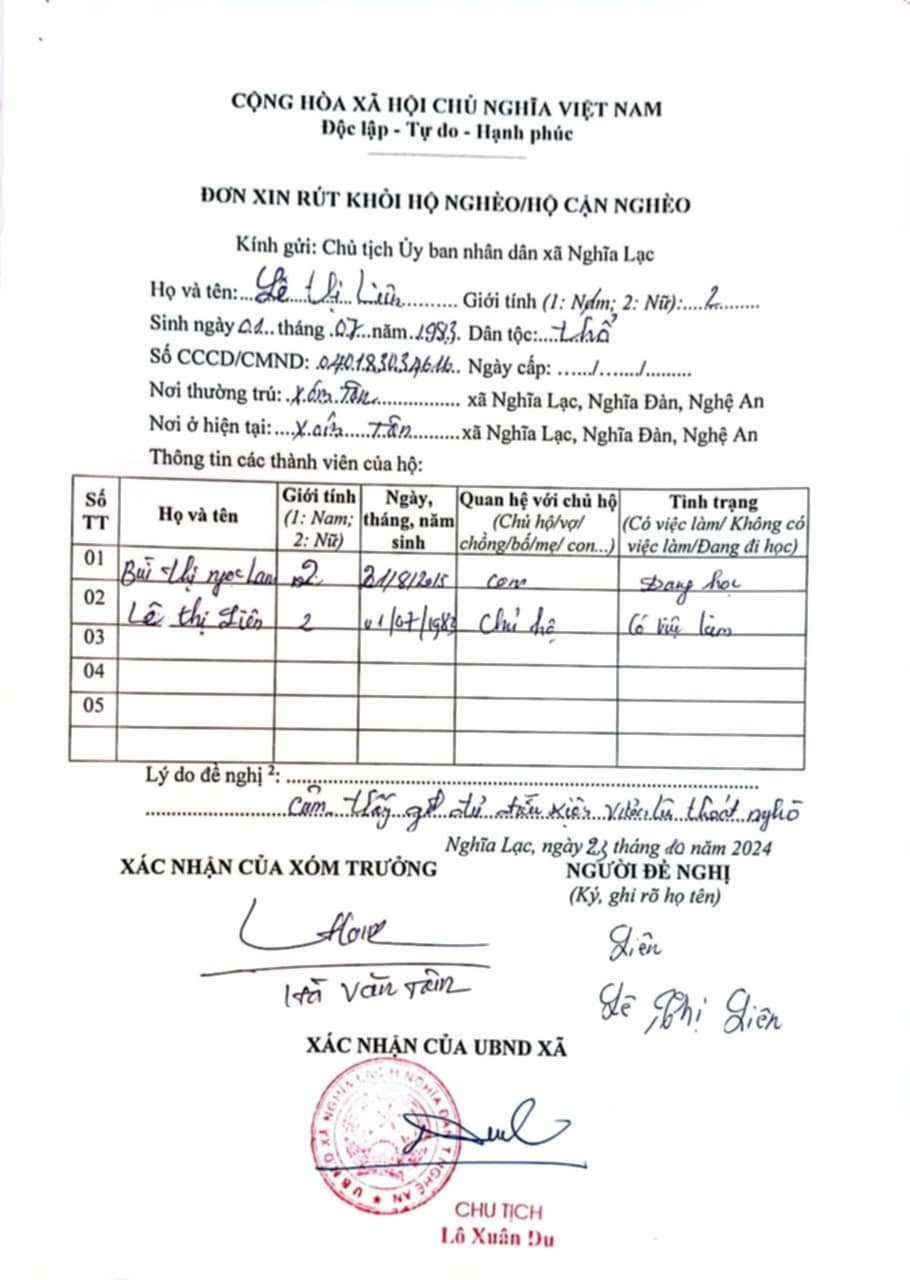 CỘNG HÒA XÃ HỘI CHỦ NGHĨA VIỆT NAM
Độc lập - Tự do - Hạnh phúc
ĐƠN XIN RÚT KHỎI HỘ NGHÈO/HỘ CẬN NGHÈO
Kính gửi: Chủ tịch Ủy ban nhân dân xã Nghĩa Lạc
Họ và tên:...Lê Thị Liên.......... Giới tính (1: Nam; 2: Nữ):....2........
Sinh ngày 01.. tháng .07...năm .1983. Dân tộc:....thổ
Số CCCD/CMND: .040183034616.. Ngày cấp: ....../......./.........
Nơi thường trú: .Xóm Tân................ xã Nghĩa Lạc, Nghĩa Đàn, Nghệ An
Nơi ở hiện tại:....Xóm.....Tân..........xã Nghĩa Lạc, Nghĩa Đàn, Nghệ An
Thông tin các thành viên của hộ:
Số TT Họ và tên Giới tính (1: Nam; 2: Nữ) Ngày, tháng, năm sinh Quan hệ với chủ hộ (Chủ hộ/vợ/ chồng/bố/mẹ/ con...) Tình trạng (Có việc làm/ Không có việc làm/Đang đi học)
01 Bùi thị ngọc lan 2 21/8/2015 con Đang học
02 Lê thị Liên 2 01/07/1983 Chủ hộ Có việc làm
03
04
05
Lý do đề nghị 2: ....................................................................................
.........................Cảm thấy gđ đủ điều kiện vươn lên thoát nghèo
Nghĩa Lạc, ngày 23 tháng 10 năm 2024
XÁC NHẬN CỦA XÓM TRƯỞNG NGƯỜI ĐỀ NGHỊ
(Ký, ghi rõ họ tên)
Liên
Hà Văn Tâm Lê Thị Liên
XÁC NHẬN CỦA UBND XÃ
U.B.N.D XÃ NGHĨA LẠC H.NGHĨA ĐÀN T.NGHỆ AN
CHỦ TỊCH
Lô Xuân Du